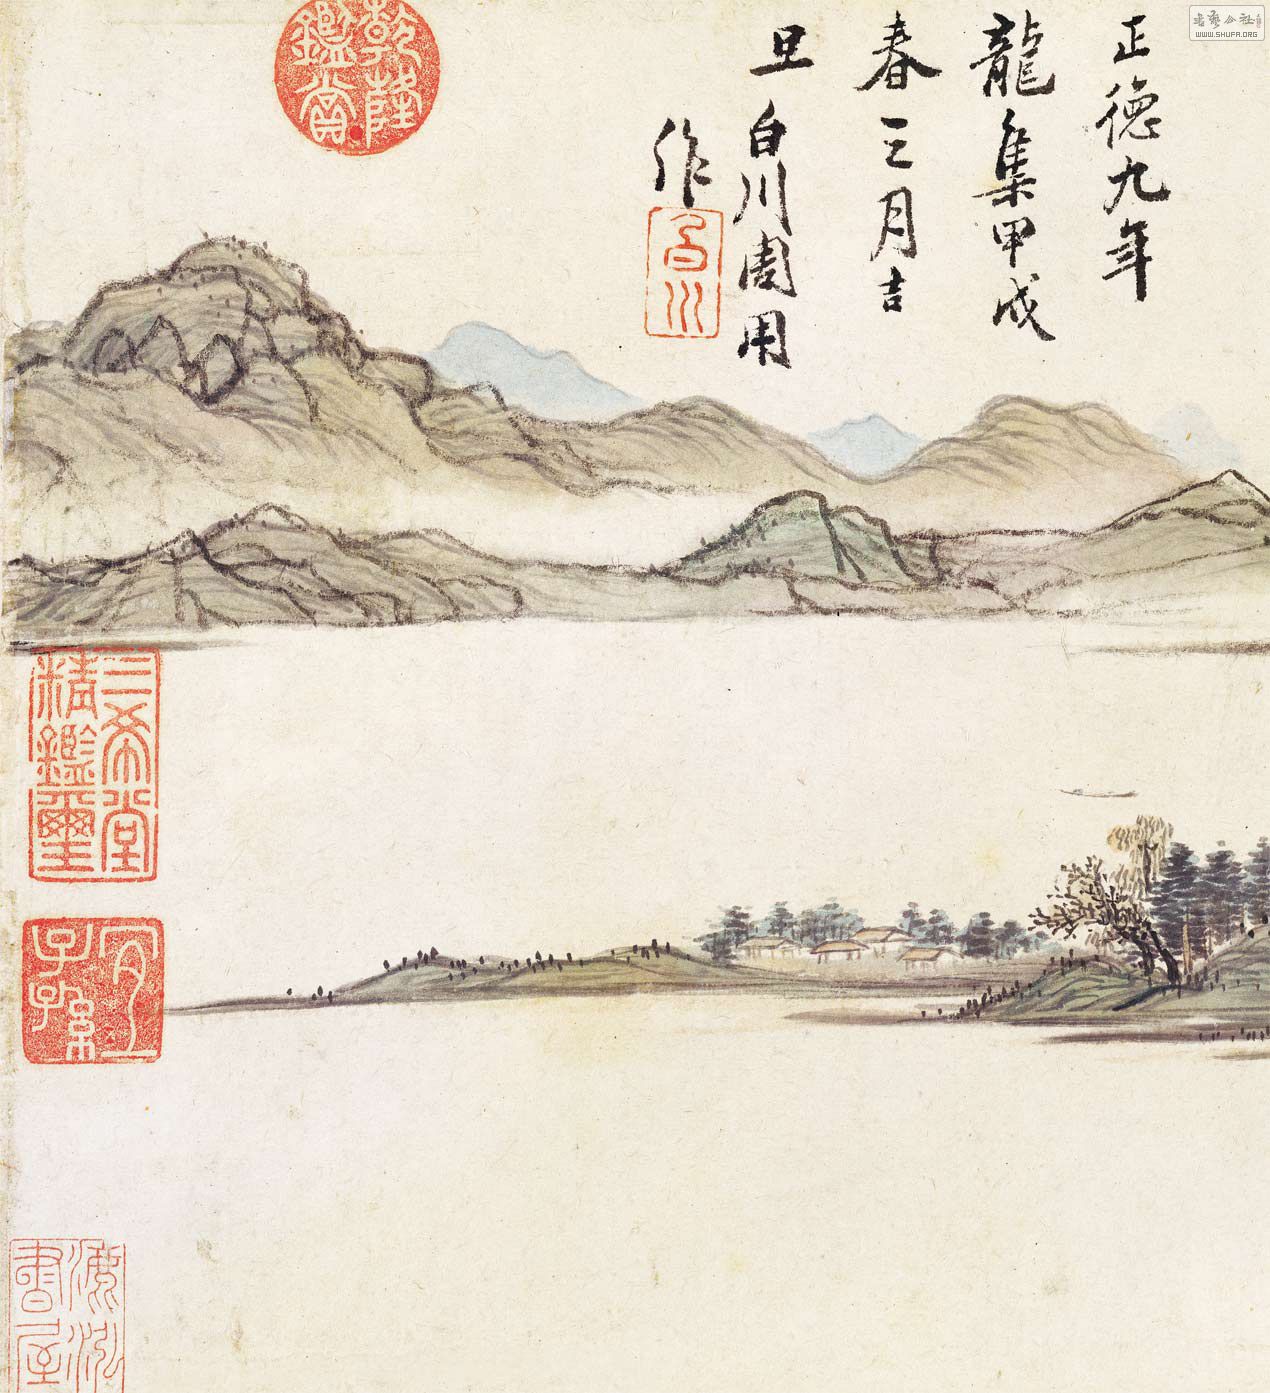 正德九年
龍集甲戌
春三月吉
旦白川周用
作
白川
乾隆
鑑賞
三希堂
精鑑璽
宜
子孫
書屋
書藝公社
WWW.SHUFA.ORG